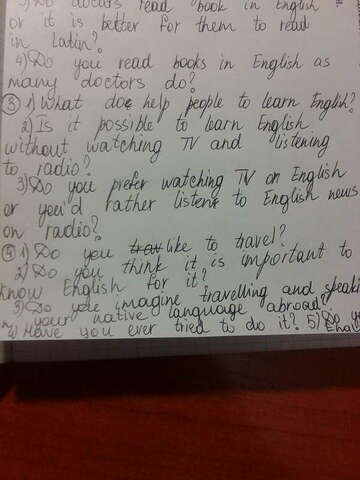 3) Do doctors read book in English
or it is better for them to read
in Latin?
4) Do you read books in English as
many doctors do?
③ 1) What does help people to learn English?
2) Is it possible to learn English
without watching TV and listening
to radio?
3) Do you prefer watching TV on English
or you'd rather listens to English news
on radio?
④ 1) Do you like to travel?
2) Do you think it is important to
know English for it?
3) Do you imagine travelling and speaki
your native language abroad?
4) Have you ever tried to do it? 5) Do y